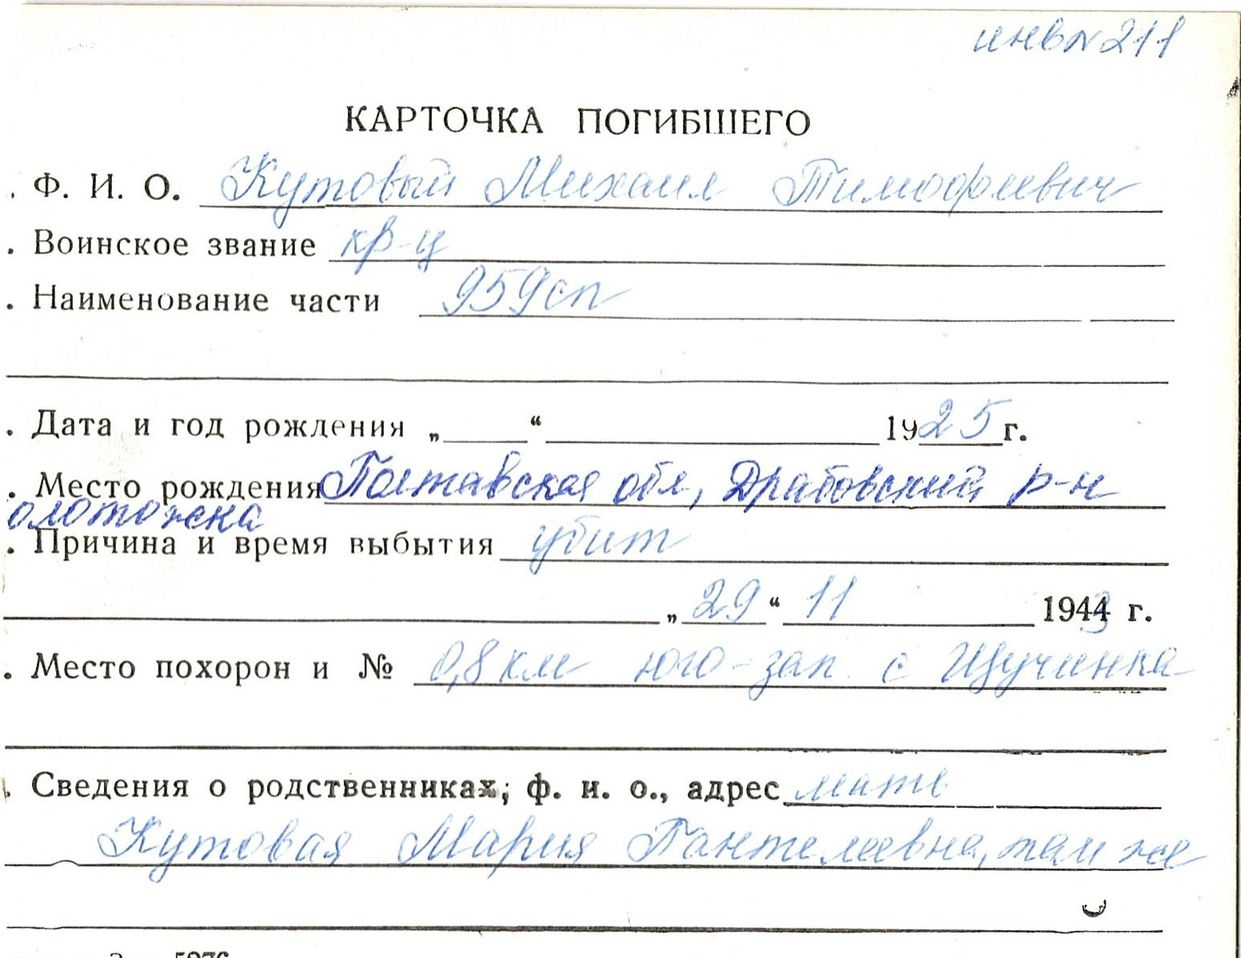 инв № 211
КАРТОЧКА ПОГИБШЕГО
. Ф. И. О. Кутовый Михаил Тимофеевич
. Воинское звание кр-ц
. Наименование части 959сп
. Дата и год рождения „ “ 1925 г.
. Место рождения Полтавская обл, Драбовский р-н
олотожска
. Причина и время выбытия убит
„ 29 “ 11 1943 г.
. Место похорон и № 0,8 км юго-зап. с Щучинка
. Сведения о родственниках; ф. и. о., адрес мать
Кутовая Мария Пантелеевна, там же
5976